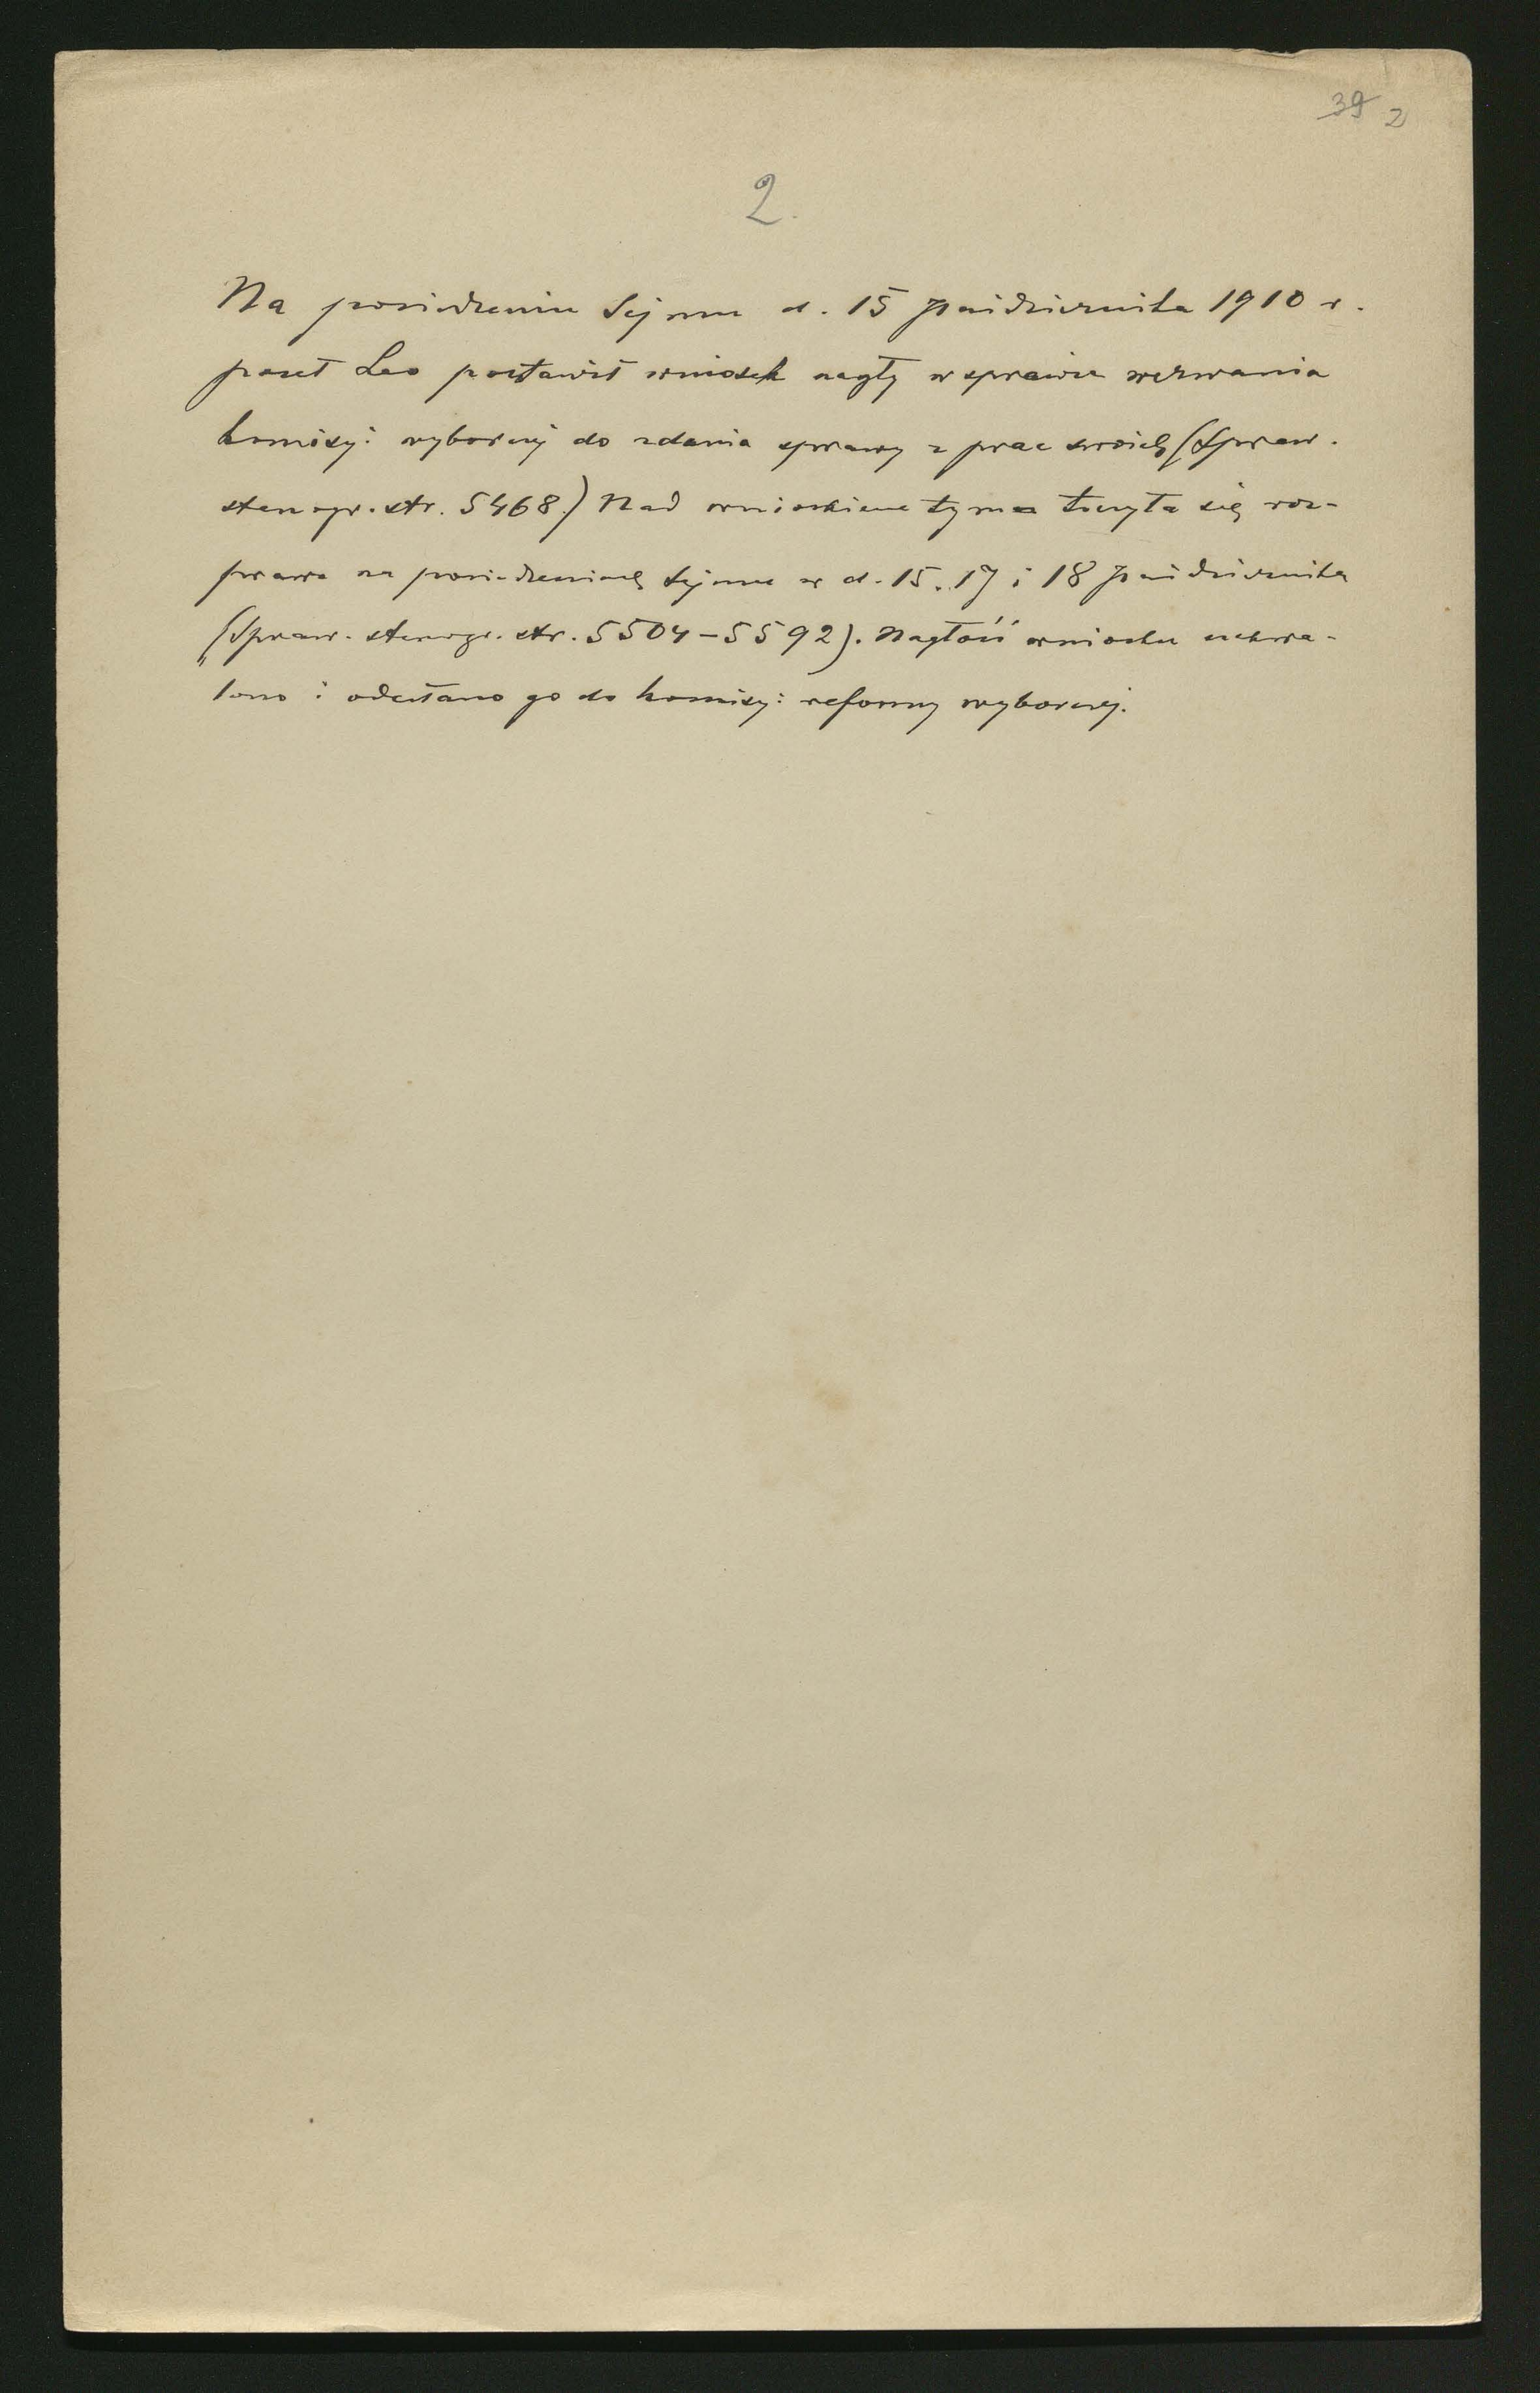 39 2
2.
Na posiedzeniu Sejmu d. 15 października 1910 r.
poseł Leo postawił wniosek nagły w sprawie wezwania
komisyi wyborczej do zdania sprawy z prac swoich (Spraw.
stenogr. str. 5468.) Nad wnioskiem tym toczyła się roz-
prawa na posiedzeniach Sejmu w d. 15. 17 i 18 października
(Spraw. stenogr. str. 5504-5592). Nagłość wniosku uchwa-
lono i odesłano go do komisyi reformy wyborczej.